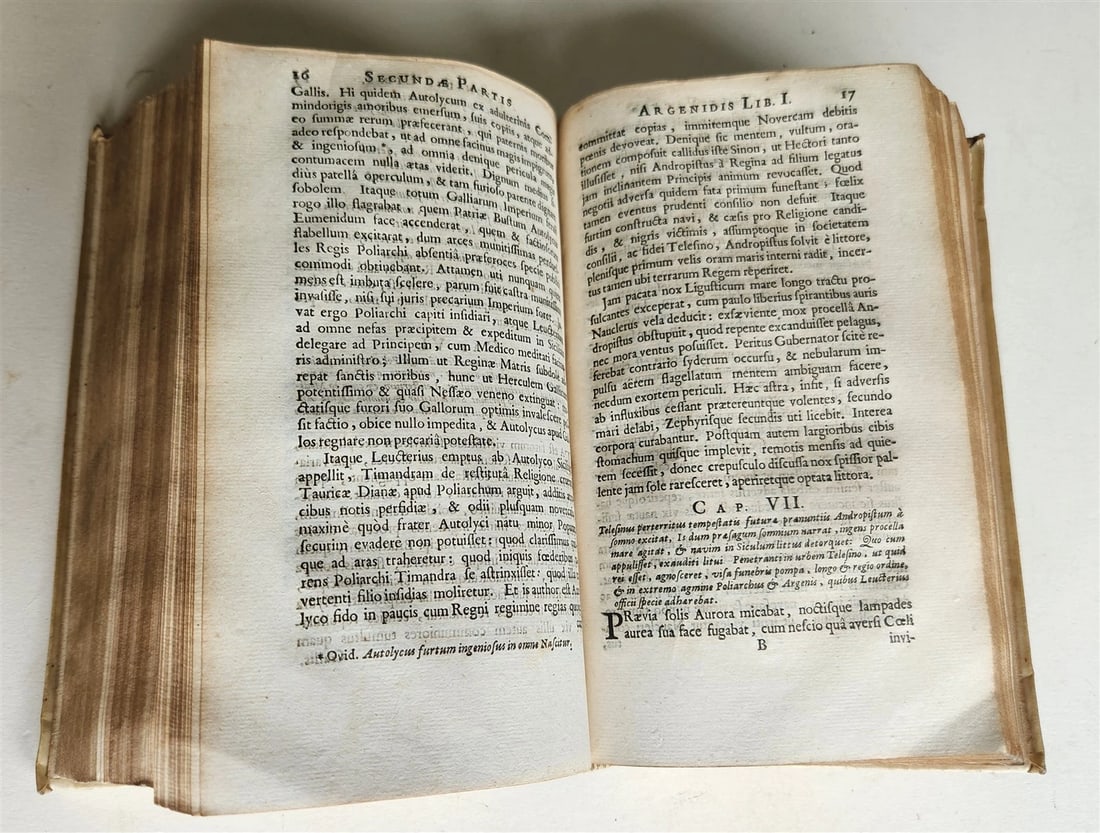 16 SECUNDÆ PARTIS
Gallis. Hi quidem Autolycum ex adulterinis
mindorigis amoribus emersum, suis copiis, atque
eo summæ rerum præfecerant, qui paternis moribus
adeo respondebat, ut ad omne facinus magis impigrum
& ingeniosum *, ad omnia denique pericula
contumacem nulla ætas viderit. Dignum
dius patellâ operculum, & tam furioso parente dignam
sobolem. Itaque totum Galliarum Imperium
rogo illo flagrabat, quem Patriæ Bustum Autolycus
Eumenidum face accenderat, quem &
flabellum excitarat, dum arces munitissimas
les Regis Poliarchi absentiâ præferoces specie
commodi obtinebant. Attamen uti nunquam
mens est imbuta scelere, parum fuit castra
invasisse, nisi sui juris precarium Imperium foret.
vat ergo Poliarchi capiti insidiari, atque
ad omne nefas præcipitem & expeditum in
delegare ad Principem, cum Medico meditati
ris administro; Illum ut Reginæ Matris
repat sanctis moribus, hunc ut Herculem
potentissimo & quasi Nessæo veneno extinguat:
ctatisque furori suo Gallorum optimis invalescere
sit factio, obice nullo impedita, & Autolycus apud
los regnare non precariâ potestate.
Itaque Leucterius emptus ab Autolyco
appellit, Timandram de restitutâ Religione
Tauricæ Dianæ, apud Poliarchum arguit, additis
cibus notis perfidiæ, & odii plusquam
maximè quod frater Autolyci natu minor
securim evadere non potuisset: quod clarissimus
que ad aras traheretur: quod iniquis
rens Poliarchi Timandra se astrinxisset: quod
vertenti filio insidias moliretur. Et is author est
lyco fido in paucis cum Regni regimine regias
* Ovid. Autolycus furtum ingeniosus in omne Nascitur,
ARGENIDIS LIB. I. 17
committat copias, immitemque Novercam debitis
pœnis devoveat. Denique sic mentem, vultum, ora-
tionem composuit callidus iste Sinon, ut Hectori tanto
illusisset, nisi Andropistus à Regina ad filium legatus
jam inclinantem Principis animum revocasset. Quod
negotii adversa quidem fata primum funestant: fœlix
tamen eventus prudenti consilio non defuit. Itaque
furtim constructa navi, & cæsis pro Religione candi-
dis, & nigris victimis, assumptoque in societatem
consilii, ac fidei Telesino, Andropistus solvit è littore,
plenisque primum velis oram maris interni radit, incer-
tus tamen ubi terrarum Regem reperiret.
Jam pacata nox Ligusticum mare longo tractu pro-
sulcantes exceperat, cum paulo liberius spirantibus auris
Nauclerus vela deducit: exsæviente mox procellâ An-
dropistus obstupuit, quod repente excanduisset pelagus,
nec mora ventus posuisset. Peritus Gubernator scite re-
ferebat contrario syderum occursu, & nebularum im-
pulsu aërem flagellatum mentem ambiguam facere,
necdum exortem periculi. Hæc astra, insit, si adversis
ab influxibus cessant prætereuntque volentes, secundo
mari delabi, Zephyrisque secundis uti licebit. Interea
corpora curabantur. Postquam autem largioribus cibis
stomachum quisque implevit, remotis mensis ad quie-
tem secessit, donec crepusculo discussa nox spissior pal-
lente jam sole raresceret, aperiretque optata littora.
CAP. VII.
Telesinus perterritus tempestatis futuræ prænuntiis Andropistum è
somno excitat, Is dum præsagum somnium narrat, ingens procella
mare agitat, & navim in Siculum littus detorquet: Quo cum
appulisset, exauditi litui Penetranti in urbem Telesino, ut quid
rei esset, agnosceret, visa funebris pompa, longo & regio ordine,
& in extremo agmine Poliarchus & Argenis, quibus Leucterius
officii specie adhærebat.
PRævia solis Aurora micabat, noctisque lampades
aurea sua face fugabat, cum nescio quâ aversi Cœli
B invi-